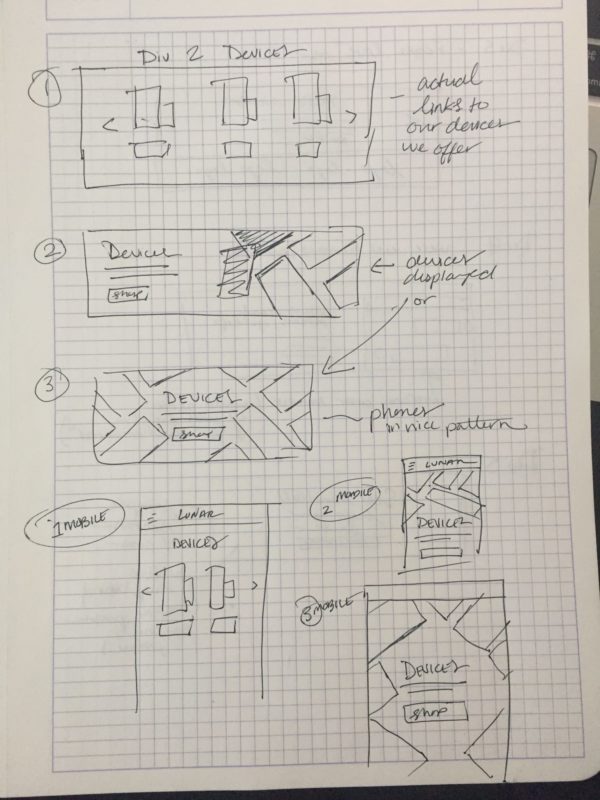 Div 2 Devices
1
actual
links to
our devices
we offer
2
Devices
shop
devices
displayed
or
3
DEVICES
shop
phones
in nice pattern
1 MOBILE
LUNAR
DEVICES
2 MOBILE
LUNAR
DEVICES
3 MOBILE
DEVICES
shop